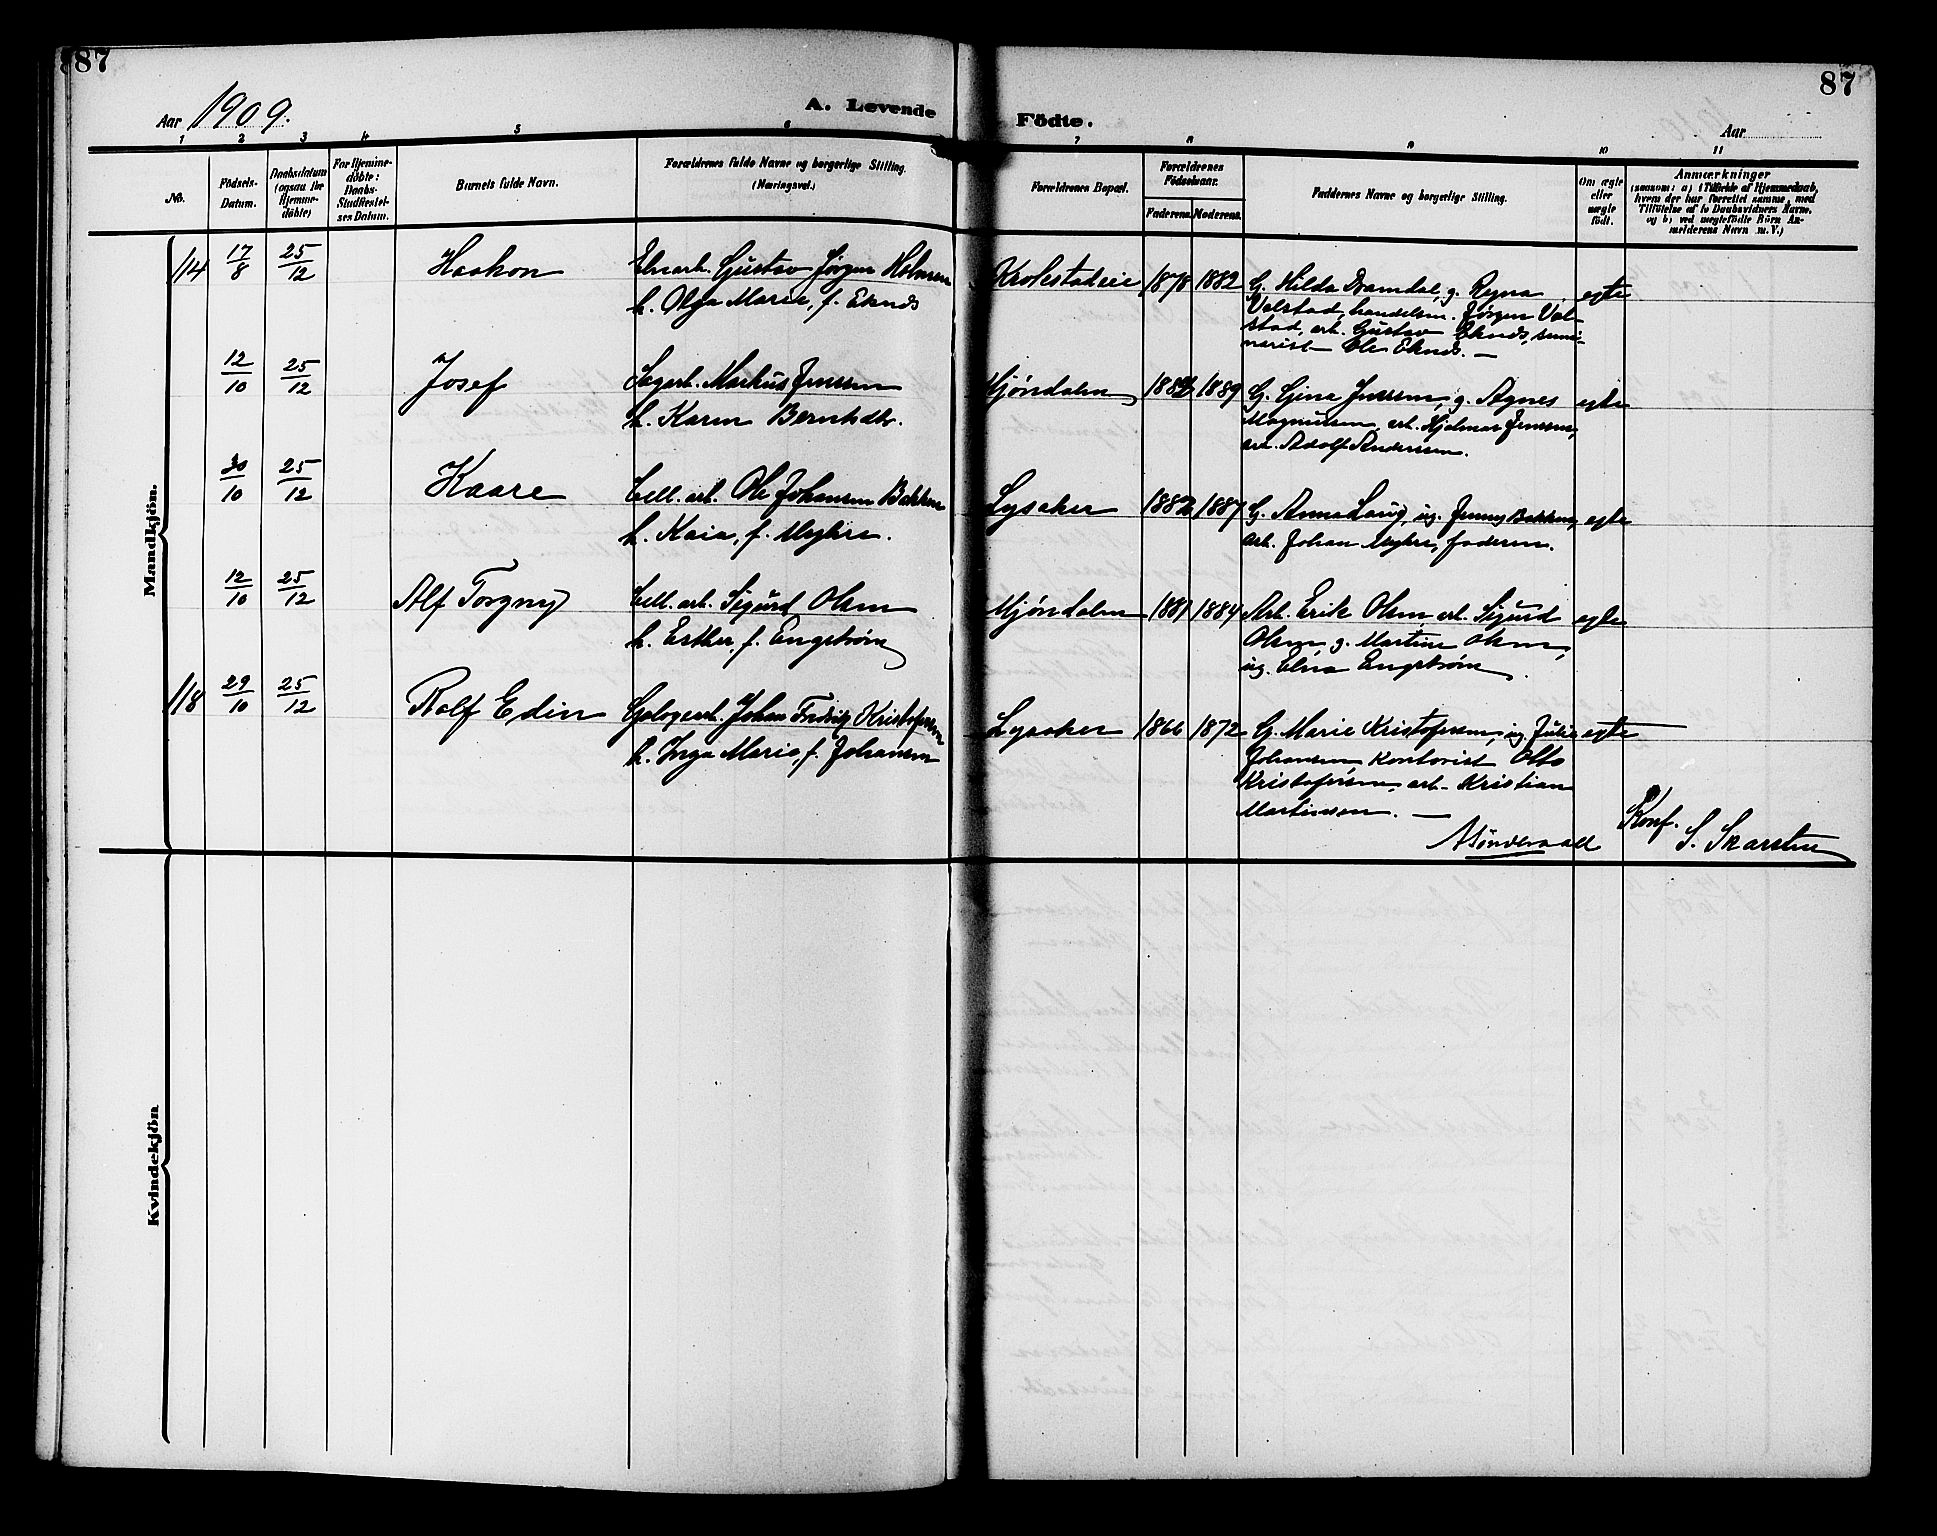 87
87
Aar 1909.
A. Levende
Födte.
Aar
1 2 3 4 5 6 7 8 9 10 11
No.
Födsels-Datum.
Daabsdatum (ogsaa for Hjemmedöbte)
For Hjemmedöbte: Daabs-Stadfæstelses Datum.
Barnets fulde Navn.
Forældrenes fulde Navne og borgerlige Stilling. (Næringsvei.)
Forældrenes Bopæl.
Forældrenes Födselsaar.
Faderens. Moderens.
Faddernes Navne og borgerlige Stilling.
Om ægte eller uægte født.
Anmærkninger
(saasom: a) i Tilfælde af Hjemmedaab, hvem der har forrettet samme, med Tilføielse af to Daabsvidners Navne, og b) ved uægtefödte Börn Anmelderens Navn m. V.)
Mandkjön.
114 17/8 25/12 Haakon
Elvarb. Gustav Jørgen Holmsen
h. Olga Marie, f. Eknes
Krokstadeie 1878 1882
G. Hilda Dramdal, g. Ragna
Valstad, handelsm. Jørgen Val-
stad, arb. Gustav Eknes, semi-
narist Ole Eknes. —
egte
12/10 25/12 Josef
Sagarb. Markus Jenssen
h. Karen Berntsdtr.
Mjøndalen 1889
G. Gina Jenssen, g. Agnes
Magnussen, arb. Hjalmar Jenssen,
arb. Adolf Anderssen.
egte
30/10 25/12 Kaare
Cell. arb. Ole Johansen Bakken
h. Kaia, f. Myhre.
Lysaker 1882 1887
G. Anna Laug, ug. Jenny Bakken,
arb. Johan Myhre, faderen.
egte
12/10 25/12 Alf Torgny
Cell. arb. Sigurd Olsen
h. Esther, f. Engstrøm
Mjøndalen 1881 1884
Arb. Erik Olsen, arb. Sigurd
Olsen, g. Martine Olsen,
ug. Elna Engstrøm.
egte
118 29/10 25/12 Rolf Edin
Johan Fredrik Kristofersen
h. Inga Marie, f. Johansen
Lysaker 1866 1872
G. Marie Kristofersen, ug. Julie
Johansen, Kontorist Otto
Kristofersen, arb. Kristian
Martinsen. —
egte
Konf. S. Skarsten
Kvindekjön